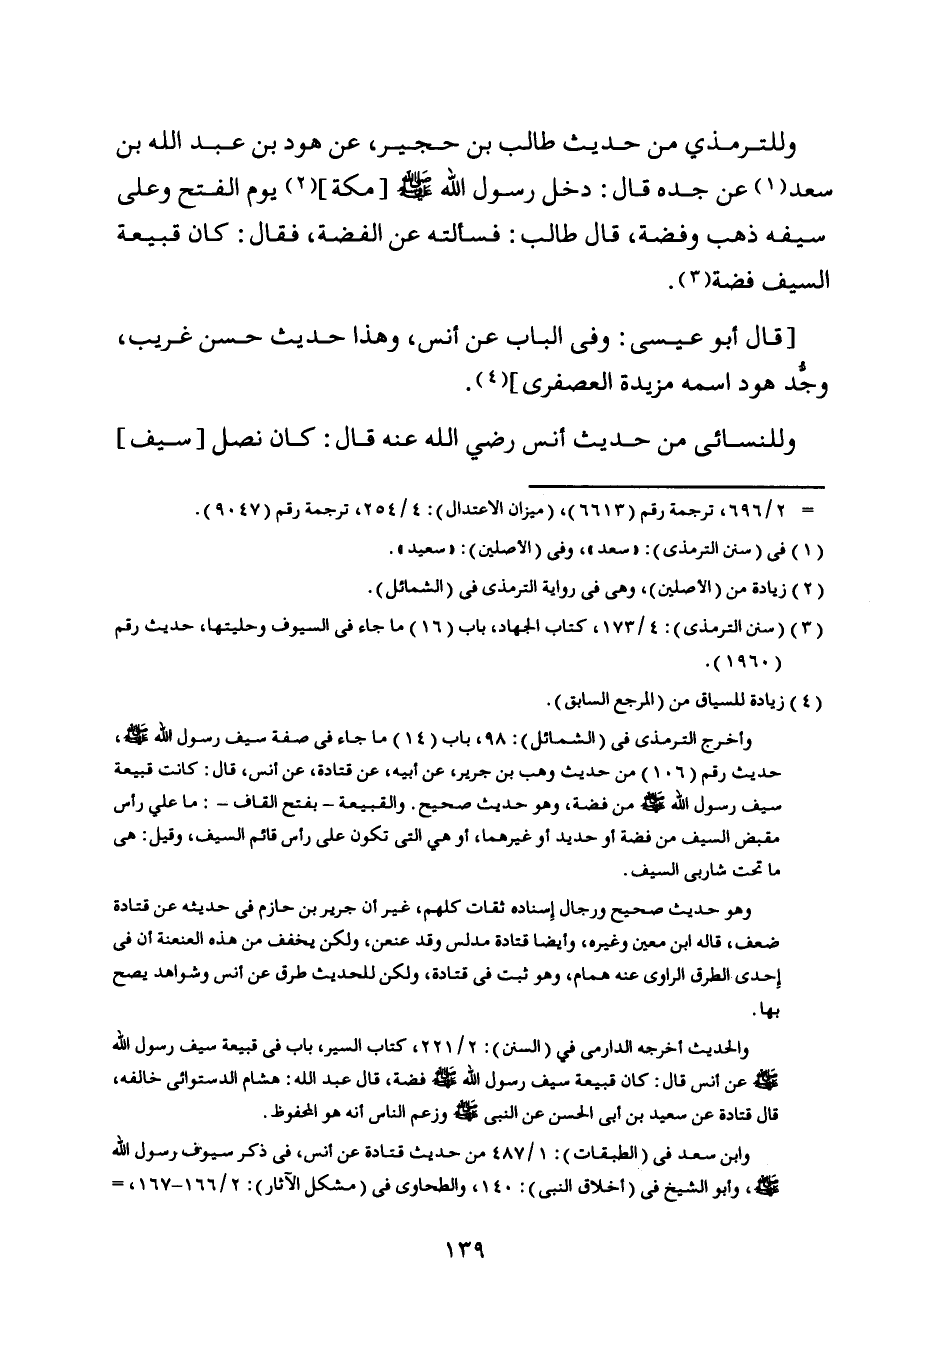 وللترمذي من حديث طالب بن حجير، عن هود بن عبد الله بن
سعد(١) عن جده قال: دخل رسول الله ﷺ [مكة](٢) يوم الفتح وعلى
سيفه ذهب وفضة، قال طالب: فسألته عن الفضة، فقال: كان قبيعة
السيف فضة(٣).
[قال أبو عيسى: وفى الباب عن أنس، وهذا حديث حسن غريب،
وجُّد هود اسمه مزيدة العصفرى](٤).
وللنسائى من حديث أنس رضي الله عنه قال: كان نصل [سيف]
= ٦٩٦/٢، ترجمة رقم (٦٦١٣)، (ميزان الاعتدال): ٢٥٤/٤، ترجمة رقم (٩٠٤٧).
(١) فى (سنن الترمذى): «سعد»، وفى (الأصلين): «سعيد».
(٢) زيادة من (الأصلين)، وهى فى رواية الترمذى فى (الشمائل).
(٣) (سنن الترمذى): ١٧٣/٤، كتاب الجهاد، باب (١٦) ما جاء فى السيوف وحليتها، حديث رقم
(١٩٦٠).
(٤) زيادة للسياق من (المرجع السابق).
وأخرج الترمذى فى (الشمائل): ٩٨، باب (١٤) ما جاء فى صفة سيف رسول الله ﷺ،
حديث رقم (١٠٦) من حديث وهب بن جرير، عن أبيه، عن قتادة، عن أنس، قال: كانت قبيعة
سيف رسول الله ﷺ من فضة، وهو حديث صحيح. والقبيعة – بفتح القاف – : ما علي رأس
مقبض السيف من فضة أو حديد أو غيرهما، أو هي التى تكون على رأس قائم السيف، وقيل: هى
ما تحت شاربى السيف.
وهو حديث صحيح ورجال إسناده ثقات كلهم، غير أن جرير بن حازم فى حديثه عن قتادة
ضعف، قاله ابن معين وغيره، وأيضا قتادة مدلس وقد عنعن، ولكن يخفف من هذه العنعنة أن فى
إحدى الطرق الراوى عنه همام، وهو ثبت فى قتادة، ولكن للحديث طرق عن أنس وشواهد يصح
بها.
والحديث أخرجه الدارمى في (السنن): ٢٢١/٢، كتاب السير، باب فى قبيعة سيف رسول الله
ﷺ عن أنس قال: كان قبيعة سيف رسول الله ﷺ فضة، قال عبد الله: هشام الدستوائى خالفه،
قال قتادة عن سعيد بن أبى الحسن عن النبى ﷺ وزعم الناس أنه هو المحفوظ.
وابن سعد فى (الطبقات): ٤٨٧/١ من حديث قتادة عن أنس، فى ذكر سيوف رسول الله
ﷺ، وأبو الشيخ فى (أخلاق النبى): ١٤٠، والطحاوى فى (مشكل الآثار): ١٦٦/٢–١٦٧، =
١٣٩